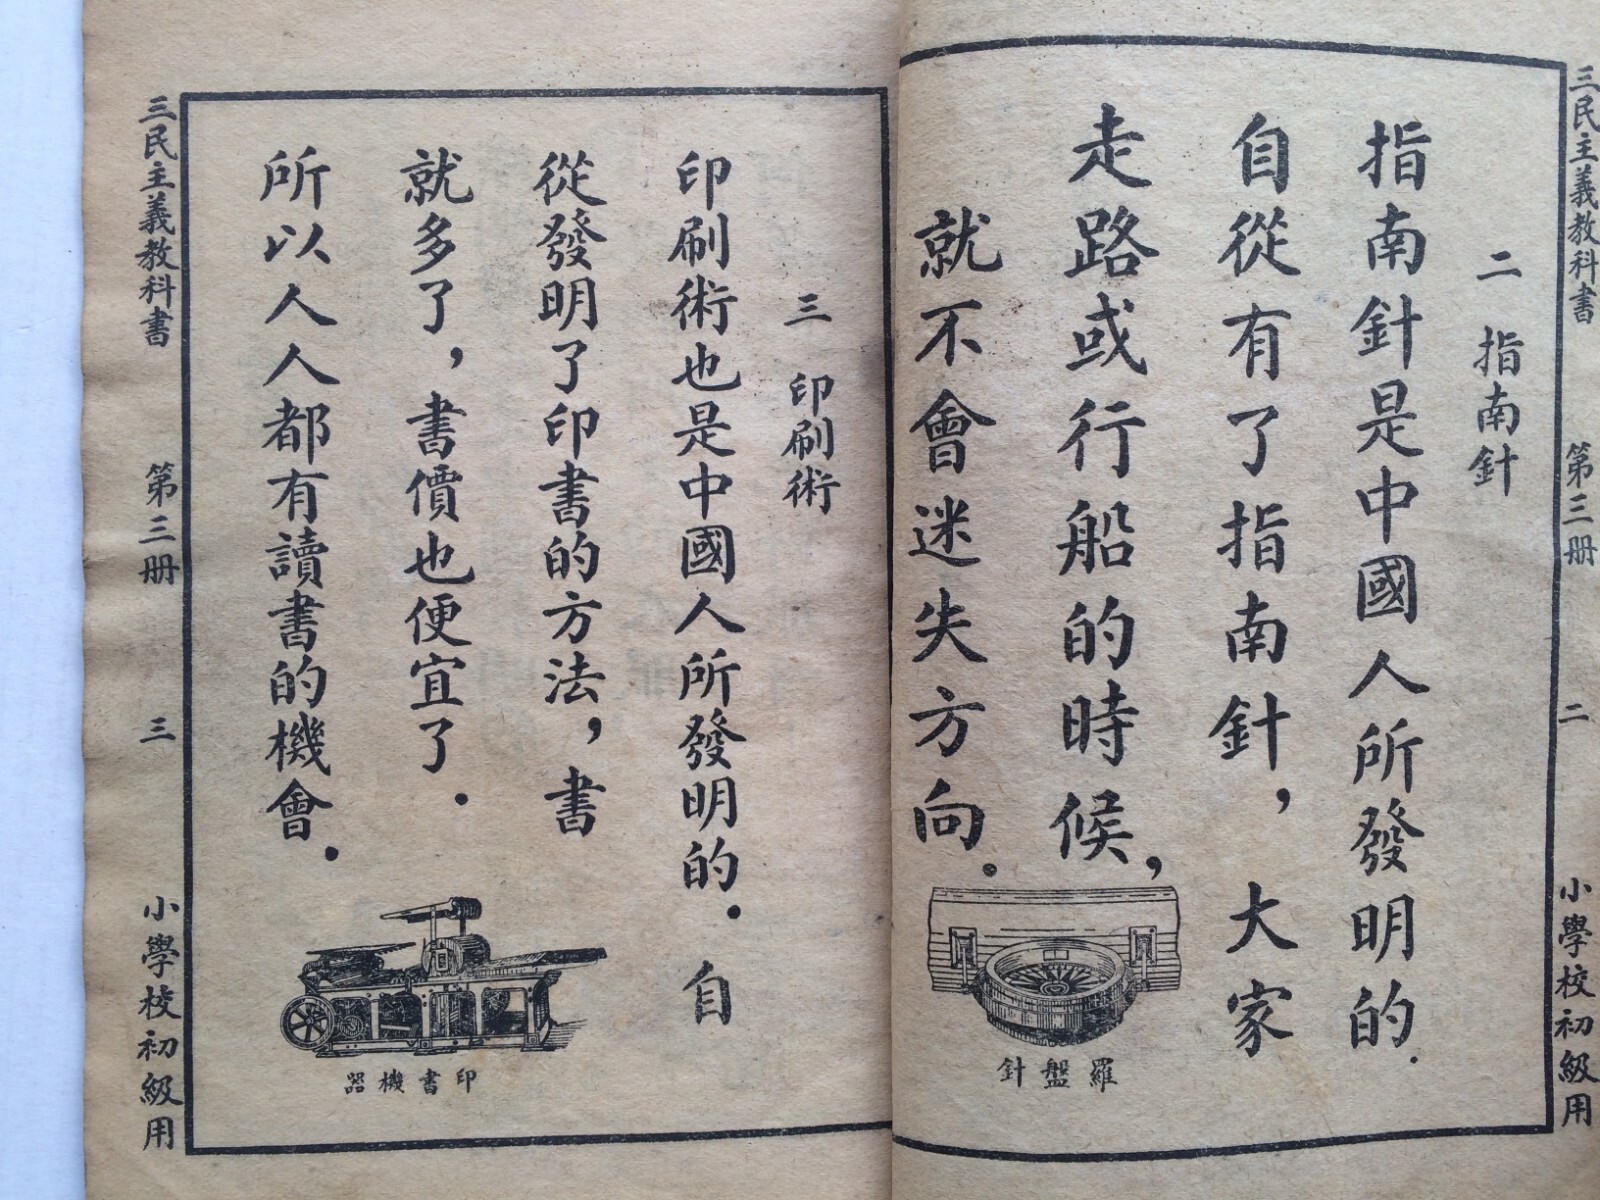 三民主義教科書 第三册 二 小學校初級用
二 指南針
指南針是中國人所發明的.
自從有了指南針，大家
走路或行船的時候，
就不會迷失方向.
羅盤針
三 印刷術
印刷術也是中國人所發明的.自
從發明了印書的方法，書
就多了，書價也便宜了.
所以人人都有讀書的機會.
印書機器
三民主義教科書 第三册 三 小學校初級用